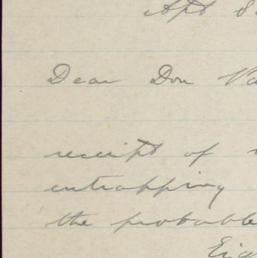 Apt 8
Dear Don
receipt of
entrapping
the probable